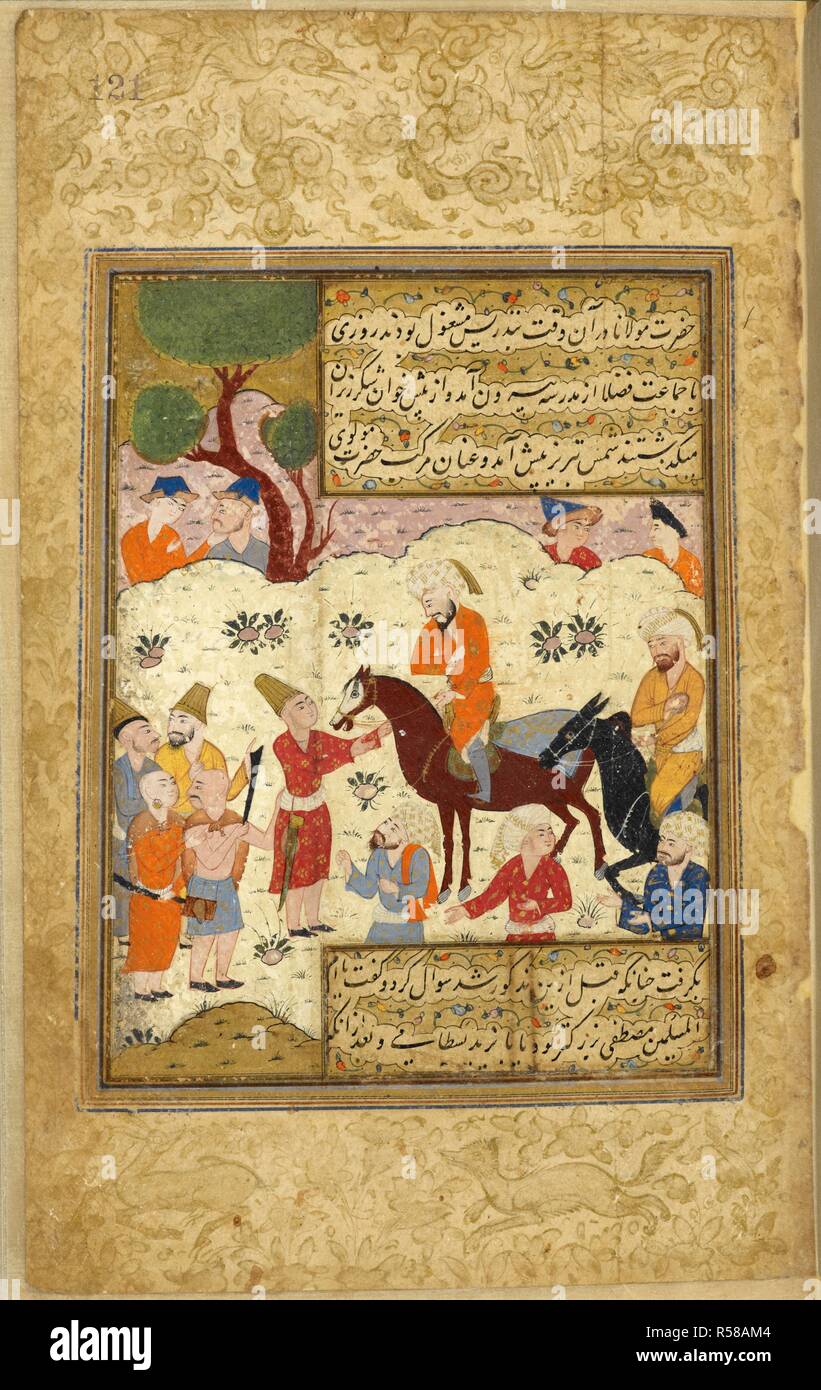 121
حضرت مولانا در آن وقت بتدریس مشغول بودند روزی
با جماعت فضلا از مدرسه بیرون آمد و از پیش خوان شکرریزان
میگذشتند شمس تبریز پیش آمد و عنان مرکب حضرت مولوی
بگرفت چنانکه قبل ازین مذکور شد سوال کرد و گفت یا امام
المسلمین مصطفی بزرگتر بود یا بایزید بسطامی و بعد از آنکه
alamy
Image ID: R58AM4
www.alamy.com